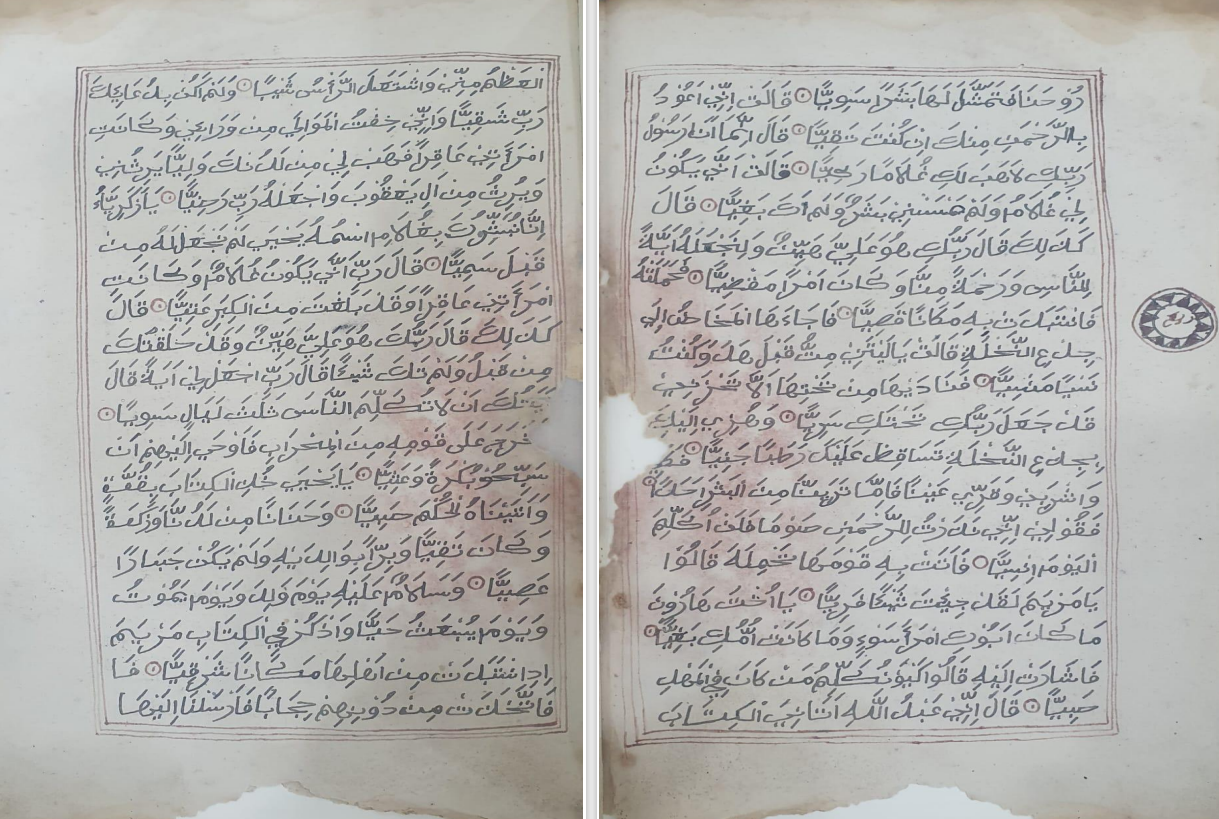 الْعَظْمُ مِنِّي وَاشْتَعَلَ الرَّأْسُ شَيْبًا وَلَمْ اَكُنْ بِدُعَائِكَ
رَبِّ شَقِيًّا وَاِنِّي خِفْتُ الْمَوَالِيَ مِنْ وَرَاءِي وَكَانَتِ
امْرَأَتِي عَاقِرًا فَهَبْ لِي مِنْ لَدُنْكَ وَلِيًّا يَرِثُنِي
وَيَرِثُ مِنْ اٰلِ يَعْقُوبَ وَاجْعَلْهُ رَبِّ رَضِيًّا يَا زَكَرِيَّاءُ
اِنَّا نُبَشِّرُكَ بِغُلَامٍ اسْمُهُ يَحْيَى لَمْ نَجْعَلْ لَهُ مِنْ
قَبْلُ سَمِيًّا قَالَ رَبِّ اَنَّى يَكُونُ لِي غُلَامٌ وَكَانَتِ
امْرَأَتِي عَاقِرًا وَقَدْ بَلَغْتُ مِنَ الْكِبَرِ عِتِيًّا قَالَ
كَذَلِكَ قَالَ رَبُّكَ هُوَ عَلَيَّ هَيِّنٌ وَقَدْ خَلَقْتُكَ
مِنْ قَبْلُ وَلَمْ تَكُ شَيْئًا قَالَ رَبِّ اجْعَلْ لِي اٰيَةً قَالَ
اٰيَتُكَ اَنْ لَا تُكَلِّمَ النَّاسَ ثَلٰثَ لَيَالٍ سَوِيًّا
فَخَرَجَ عَلَى قَوْمِهِ مِنَ الْمِحْرَابِ فَاَوْحَى اِلَيْهِمْ اَنْ
سَبِّحُوا بُكْرَةً وَعَشِيًّا يَا يَحْيَى خُذِ الْكِتَابَ بِقُوَّةٍ
وَاٰتَيْنَاهُ الْحُكْمَ صَبِيًّا وَحَنَانًا مِنْ لَدُنَّا وَزَكٰوةً
وَكَانَ تَقِيًّا وَبَرًّا بِوَالِدَيْهِ وَلَمْ يَكُنْ جَبَّارًا
عَصِيًّا وَسَلَامٌ عَلَيْهِ يَوْمَ وُلِدَ وَيَوْمَ يَمُوتُ
وَيَوْمَ يُبْعَثُ حَيًّا وَاذْكُرْ فِي الْكِتَابِ مَرْيَمَ
اِذِ انْتَبَذَتْ مِنْ اَهْلِهَا مَكَانًا شَرْقِيًّا فَا
فَاتَّخَذَتْ مِنْ دُونِهِمْ حِجَابًا فَاَرْسَلْنَا اِلَيْهَا
رُوحَنَا فَتَمَثَّلَ لَهَا بَشَرًا سَوِيًّا قَالَتْ اِنِّي اَعُوذُ
بِالرَّحْمٰنِ مِنْكَ اِنْ كُنْتَ تَقِيًّا قَالَ اِنَّمَا اَنَا رَسُولُ
رَبِّكِ لِاَهَبَ لَكِ غُلَامًا زَكِيًّا قَالَتْ اَنَّى يَكُونُ
لِي غُلَامٌ وَلَمْ يَمْسَسْنِي بَشَرٌ وَلَمْ اَكُ بَغِيًّا قَالَ
كَذَلِكِ قَالَ رَبُّكِ هُوَ عَلَيَّ هَيِّنٌ وَلِنَجْعَلَهُ اٰيَةً
لِلنَّاسِ وَرَحْمَةً مِنَّا وَكَانَ اَمْرًا مَقْضِيًّا فَحَمَلَتْهُ
فَانْتَبَذَتْ بِهِ مَكَانًا قَصِيًّا فَاجَاءَهَا الْمَخَاضُ اِلَى
جِذْعِ النَّخْلَةِ قَالَتْ يَالَيْتَنِي مِتُّ قَبْلَ هَذَا وَكُنْتُ
نَسْيًا مَنْسِيًّا فَنَادٰيهَا مِنْ تَحْتِهَا اَلَّا تَحْزَنِي
قَدْ جَعَلَ رَبُّكِ تَحْتَكِ سَرِيًّا وَهُزِّي اِلَيْكِ
بِجِذْعِ النَّخْلَةِ تُسَاقِطْ عَلَيْكِ رُطَبًا جَنِيًّا فَكُلِي
وَاشْرَبِي وَقَرِّي عَيْنًا فَاِمَّا تَرَيِنَّ مِنَ الْبَشَرِ اَحَدًا
فَقُولِي اِنِّي نَذَرْتُ لِلرَّحْمٰنِ صَوْمًا فَلَنْ اُكَلِّمَ
الْيَوْمَ اِنْسِيًّا فَاَتَتْ بِهِ قَوْمَهَا تَحْمِلُهُ قَالُوا
يَا مَرْيَمُ لَقَدْ جِئْتِ شَيْئًا فَرِيًّا يَا اُخْتَ هَارُونَ
مَا كَانَ اَبُوكِ امْرَأَ سَوْءٍ وَمَا كَانَتْ اُمُّكِ بَغِيًّا
فَاَشَارَتْ اِلَيْهِ قَالُوا كَيْفَ نُكَلِّمُ مَنْ كَانَ فِي الْمَهْدِ
صَبِيًّا قَالَ اِنِّي عَبْدُ اللَّهِ اٰتَانِيَ الْكِتَابَ